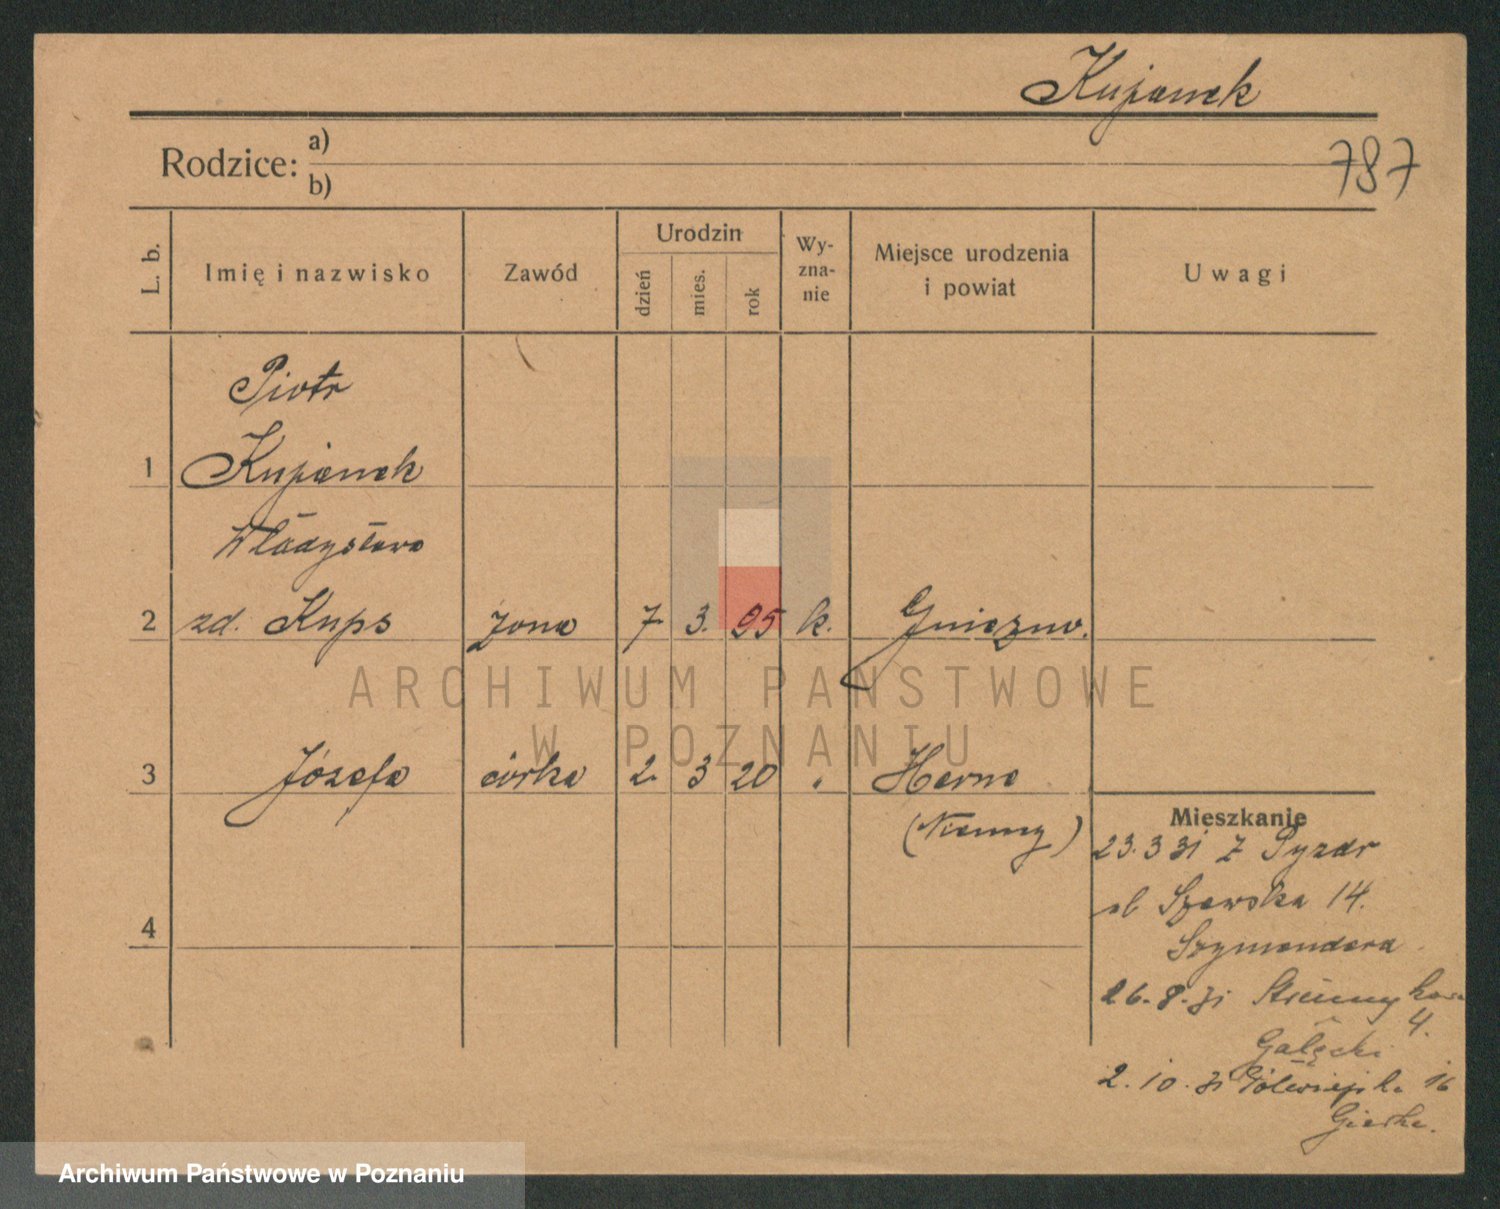 Kujanek
Rodzice: a)
b)
787
L. b.
Imię i nazwisko
Zawód
Urodzin
dzień
mies.
rok
Wy-
zna-
nie
Miejsce urodzenia
i powiat
Uwagi
Piotr
1 Kujanek
Władysława
2 zd. Kups żona 7. 3. 95 k. Gniezno.
ARCHIWUM PAŃSTWOWE
W POZNANIU
3 Józefa córka 2. 3 20 " Herne
(Niemcy)
4
Mieszkanie
23.3 31 z Pyzdr
ul Szewska 14.
Szymendera
26.8.31
4.
Gałęcki
2.10.31 Półwiejska 16
Archiwum Państwowe w Poznaniu